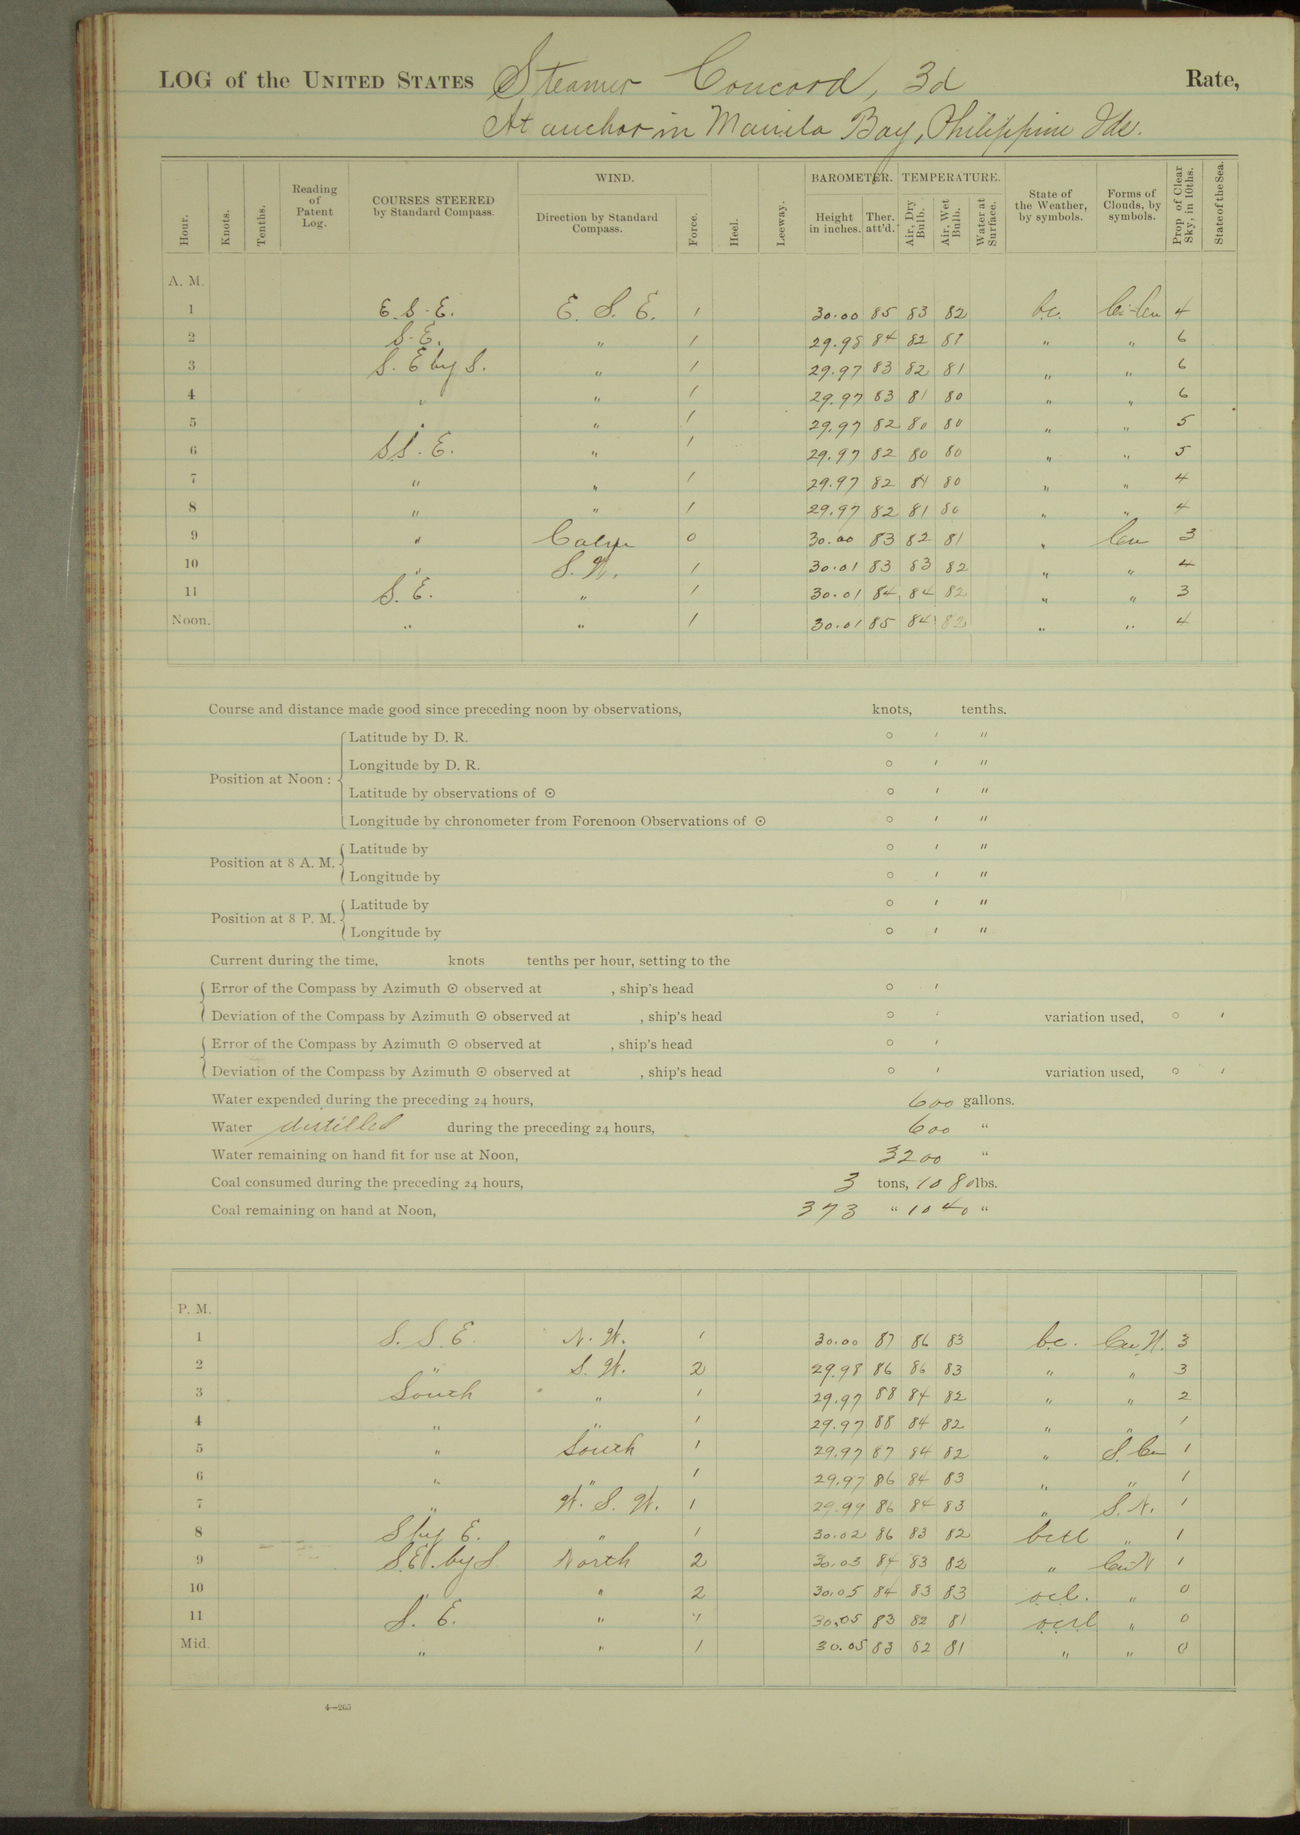 LOG of the UNITED STATES Steamer Concord, 3d Rate,
At anchor in Manila Bay, Philippine Ids.
Hour. Knots. Tenths. Reading of Patent Log. COURSES STEERED by Standard Compass. WIND. Direction by Standard Compass. Force. Heel. Leeway. BAROMETER. Height in inches. Ther. att'd. TEMPERATURE. Air, Dry Bulb. Air, Wet Bulb. Water at Surface. State of the Weather, by symbols. Forms of Clouds, by symbols. Prop. of Clear Sky, in 10ths. State of the Sea.
A. M.
1 E. S. E. E. S. E. 1 30.00 85 83 82 b.c. Ci-Cu 4
2 S. E. " 1 29.98 84 82 81 " " 6
3 S. E by S. " 1 29.97 83 82 81 " " 6
4 " " 1 29.97 83 81 80 " " 6
5 " " 1 29.97 82 80 80 " " 5
6 S.S. E. " 1 29.97 82 80 80 " " 5
7 " " 1 29.97 82 81 80 " " 4
8 " " 1 29.97 82 81 80 " " 4
9 " Calm 0 30.00 83 82 81 " Cu 3
10 " S. W. 1 30.01 83 83 82 " " 4
11 S. E. " 1 30.01 84 84 82 " " 3
Noon. " " 1 30.01 85 84 82 " " 4
Course and distance made good since preceding noon by observations, knots, tenths.
Position at Noon: Latitude by D. R. ° ′ ″
Longitude by D. R. ° ′ ″
Latitude by observations of ☉ ° ′ ″
Longitude by chronometer from Forenoon Observations of ☉ ° ′ ″
Position at 8 A. M. Latitude by ° ′ ″
Longitude by ° ′ ″
Position at 8 P. M. Latitude by ° ′ ″
Longitude by ° ′ ″
Current during the time, knots tenths per hour, setting to the
Error of the Compass by Azimuth ☉ observed at , ship's head ° ′
Deviation of the Compass by Azimuth ☉ observed at , ship's head ° ′ variation used, ° ′
Error of the Compass by Azimuth ☉ observed at , ship's head ° ′
Deviation of the Compass by Azimuth ☉ observed at , ship's head ° ′ variation used, ° ′
Water expended during the preceding 24 hours, 600 gallons.
Water distilled during the preceding 24 hours, 600 "
Water remaining on hand fit for use at Noon, 3200 "
Coal consumed during the preceding 24 hours, 3 tons, 1080 lbs.
Coal remaining on hand at Noon, 373 " 1040 "
P. M.
1 S. S. E. N. W. 1 30.00 87 86 83 b.c. Cu. N. 3
2 " S. W. 2 29.98 86 86 83 " " 3
3 South " 1 29.97 88 84 82 " " 2
4 " " 1 29.97 88 84 82 " " 1
5 " South 1 29.97 87 84 82 " S. Cu 1
6 " " 1 29.97 86 84 83 " " 1
7 " W. S. W. 1 29.99 86 84 83 " S. N. 1
8 S by E. " 1 30.02 86 83 82 " 1
9 S.E. by S. North 2 30.03 84 83 82 " Cu N 1
10 " " 2 30.05 84 83 83 " 0
11 S. E. " " 30.05 83 82 81 " 0
Mid. " " 1 30.05 83 82 81 " " 0
4—265